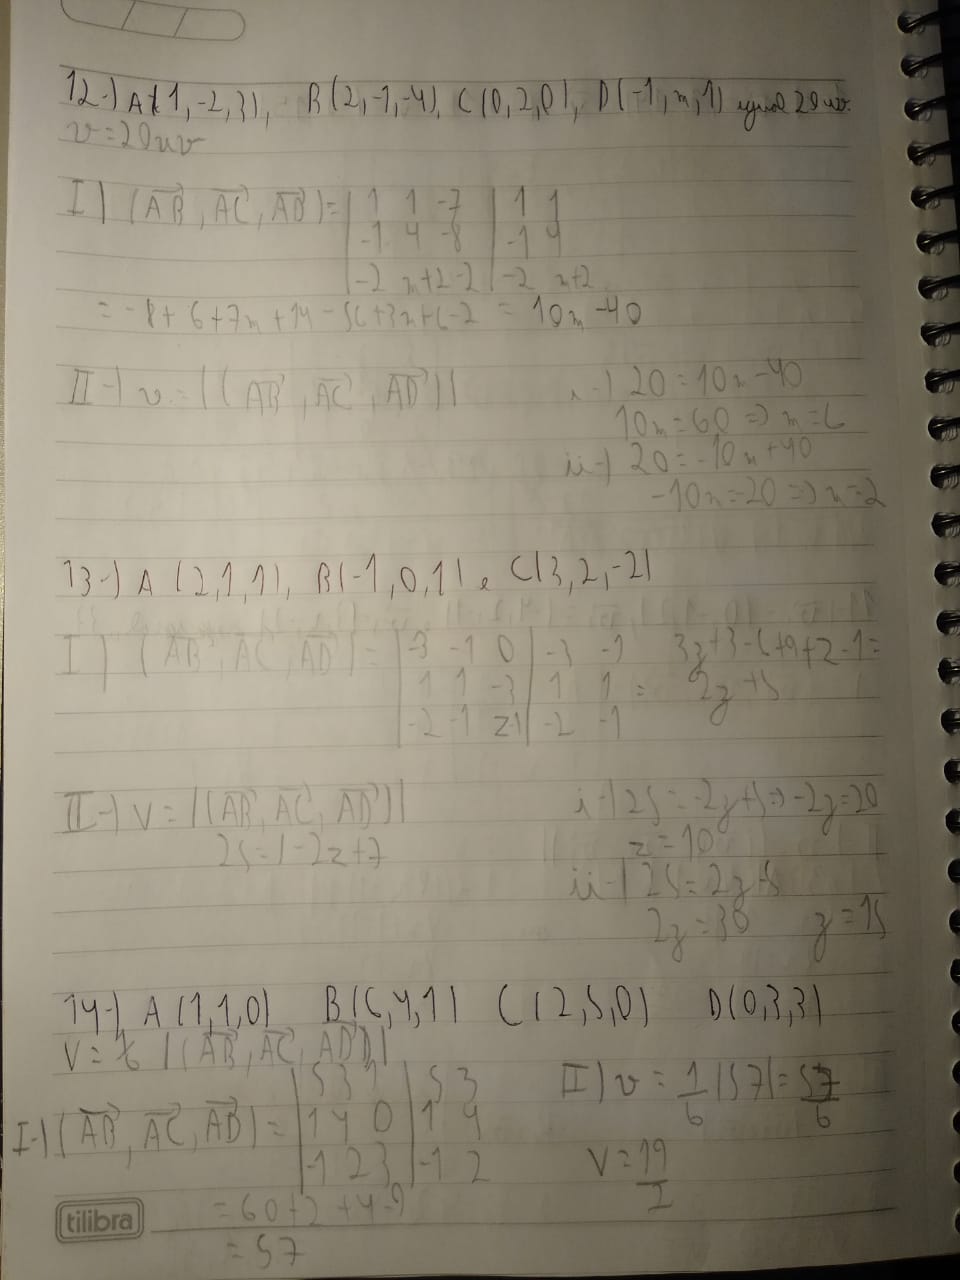 12-) A(1,-2,3), B(2,-1,-4), C(0,2,0), D(-1,m,1) igual 20 uv.
v=20uv
I) (AB, AC, AD)= | 1 1 -7 | 1 1
| -1 4 -8 | -1 4
| -2 m+2 -2 | -2 m+2
= -8+ 6+7m+14-56+3m+6-2 = 10m-40
II-) v = |(AB, AC, AD)|
i-) 20=10m-40
10m=60 => m=6
ii-) 20=-10m+40
-10m=-20 => m=2
13-) A (2,1,1), B(-1,0,1) e C(3,2,-2)
I) (AB, AC, AD) = | -3 -1 0 | -3 -1 3z+3-6+9+2-1=
| 1 1 -3 | 1 1 = 2z+5
| -2 -1 z-1 | -2 -1
II-) V = |(AB, AC, AD)|
25=|-2z+7
i-) 25=-2z+5=>-2z=20
z=10
ii-) 25=2z-5
2z=30 z=15
14-) A (1,1,0) B(6,4,1) C(2,5,0) D(0,3,3)
V= |(AB, AC, AD)|
I-) (AB, AC, AD) = | 5 3 1 | 5 3
| 1 4 0 | 1 4
| -1 2 3 | -1 2
= 60+2+4-9
= 57
II) v = 1/6 |57|= 57/6
V=19/2
tilibra